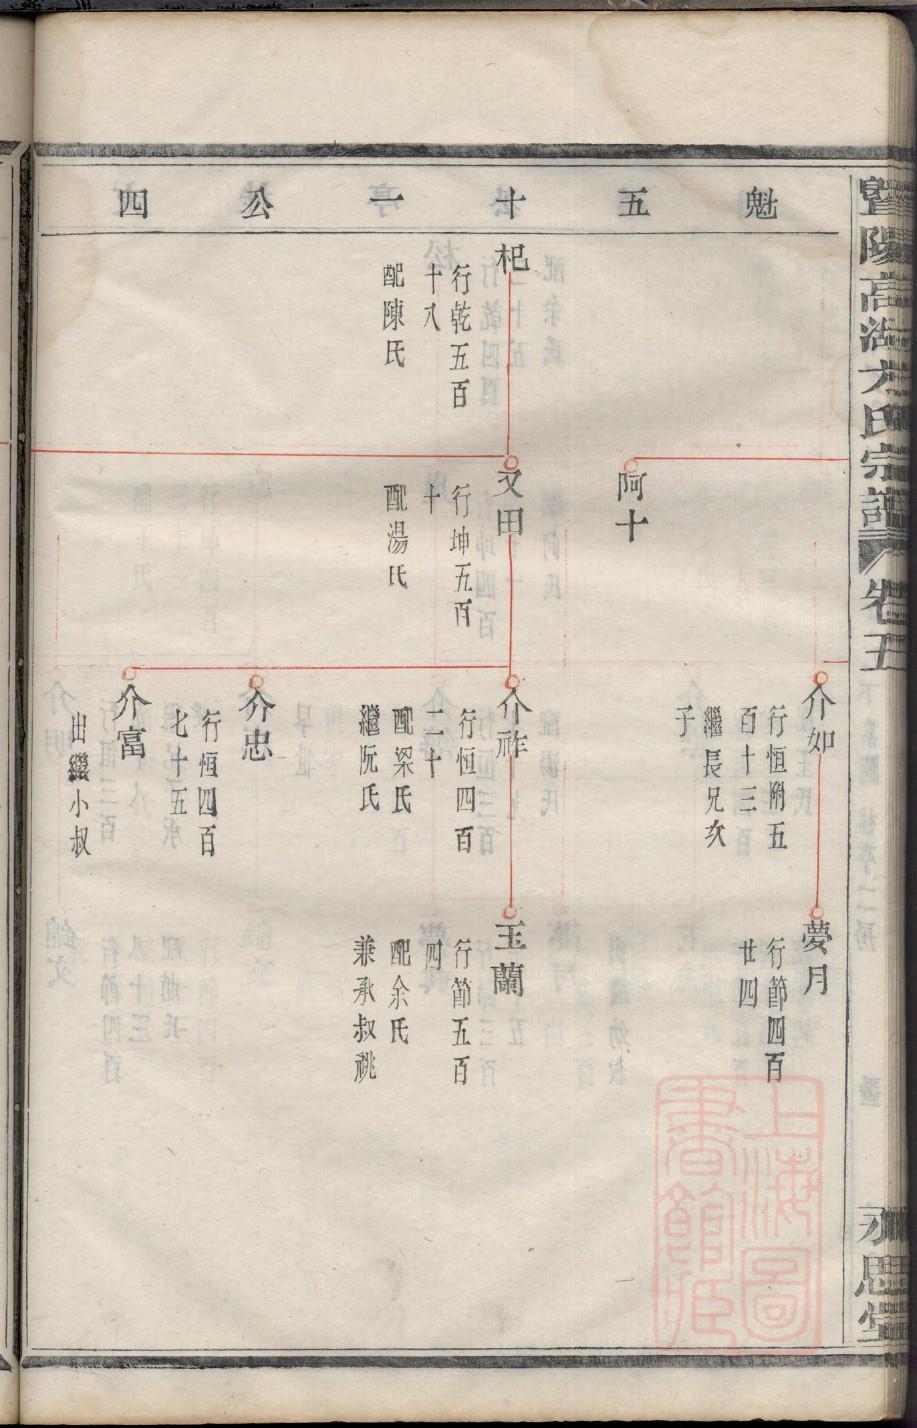 暨陽高湖方氏宗譜
卷五
永思堂
魁五十一公四
杞
行乾五百
十八
配陳氏
阿十
文田
行坤五百
十
配湯氏
介如
行恒附五
百十三
繼長兄次
子
介祚
行恒四百
二十
配梁氏
繼阮氏
介忠
行恒四百
七十五
介富
出繼小叔
夢月
行節四百
廿四
玉蘭
行節五百
四
配余氏
兼承叔祧
上海圖
書館藏